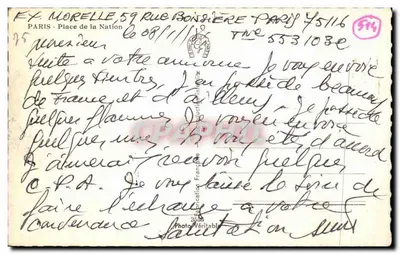 EX MORELLE, 59 RUE BOISSIERE PARIS 75116
PARIS - Place de la Nation
le 08/1/1
Tne 553 103c
584
75
monsieur
suite a votre annonce Je vous envoie
quelques timbres, J'en possède beaucoup
de France, et d'ailleurs, Je possède
quelques flammes, Je vous en envoie
quelques unes, si vous êtes d'accord
J'aimerai recevoir quelques
C.P.A. Je vous laisse le soin de
faire l'échange a votre
convenance
Salutation
Fabrication Française
Photo Véritable